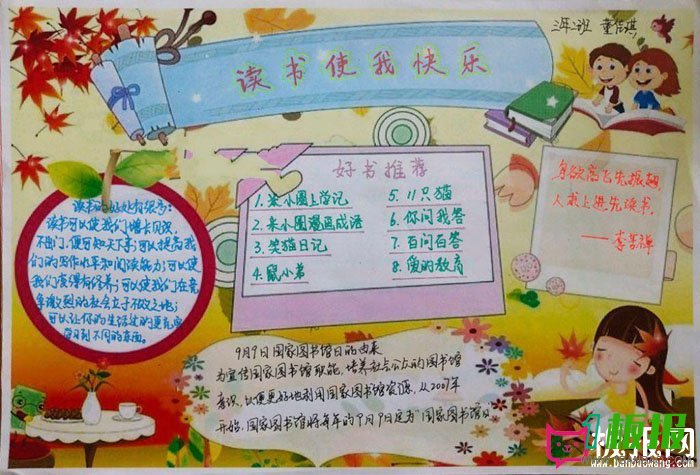 三年二班
读书使我快乐
好书推荐
1. 米小圈上学记
2. 米小圈漫画成语
3. 笑猫日记
4. 鼠小弟
5. 11只猫
6. 你问我答
7. 百问百答
8. 爱的教育
鸟欲高飞先振翅,
人求上进先读书。
——李苦禅
读书的好处有很多:
读书可以使我们增长见识,
不出门,便可知天下事;可以提高我
们的写作水平和阅读能力;可以使
我们变得有修养;可以使我们在竞
争激烈的社会立于不败之地;
可以让你的生活过的更充实,
学习到不同的东西。
9月9日国家图书馆日的由来
为宣传国家图书馆职能,培养社会公众的图书馆
意识,以便更好地利用国家图书馆资源,从2007年
开始,国家图书馆将每年的9月9日定为“国家图书馆日
板报网
www.banbaowang.com